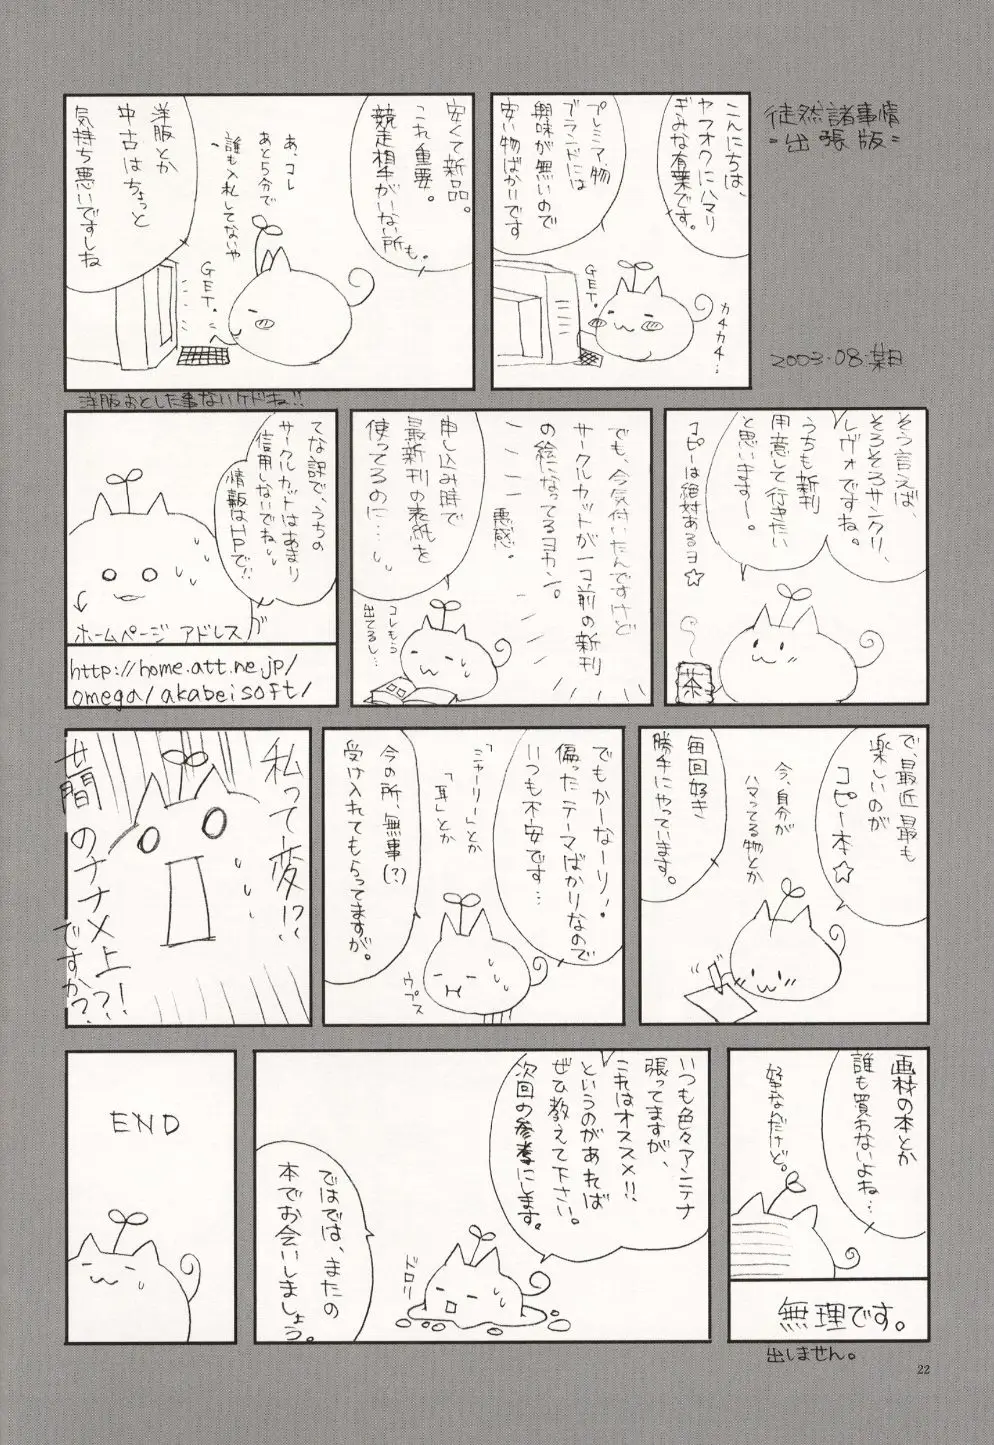 徒然諸事情
=出張版=
2003・08・某日
こんにちは、
ヤフオクにハマリ
ぎみな有葉です。
プレミア物
ブランドには
興味が無いので
安い物ばかりです
カチカチ…
GET.
安くて新品。
これ重要。
競走相手がいない所も。
あ、コレ
あと5分で
誰も入札してないや
GET.
洋服とか
中古はちょっと
気持ち悪いですしね
洋服おとした事ないケドね!!
そう言えば、
そろそろサンクリ、
レヴォですね。
うちも新刊
用意して行きたい
と思いますー。
コピーは絶対あるヨ☆
茶
でも、今気付いたんですけど
サークルカットが一コ前の新刊
の絵になってるヨカン。
悪感。
申し込み時で
最新刊の表紙を
使ってるのに…
コレもう
出てるし…
てな訳で、うちの
サークルカットはあまり
信用しないでね
情報はHPで!!
ホームページ アドレス
http://home.att.ne.jp/
omega/akabeisoft/
で、最近最も
楽しいのが
コピー本☆
今、自分が
ハマってる物とか
毎回好き
勝手にやっています。
でもかーなーり、
偏ったテーマばかりなので
いつも不安です…
「ニャーリー」とか
「耳」とか
今の所、無事(?)
受け入れてもらってますが。
ウプス
私って変!?
世間のナナメ上
ですか??!
画材の本とか
誰も買わないよね…
好きなんだけど。
無理です。
出しません。
いつも色々アンテナ
張ってますが、
これはオススメ!!
というのがあれば
ぜひ教えて下さい。
次回の参考にします。
ドロリ
ではでは、またの
本でお会いしましょう。
END
22